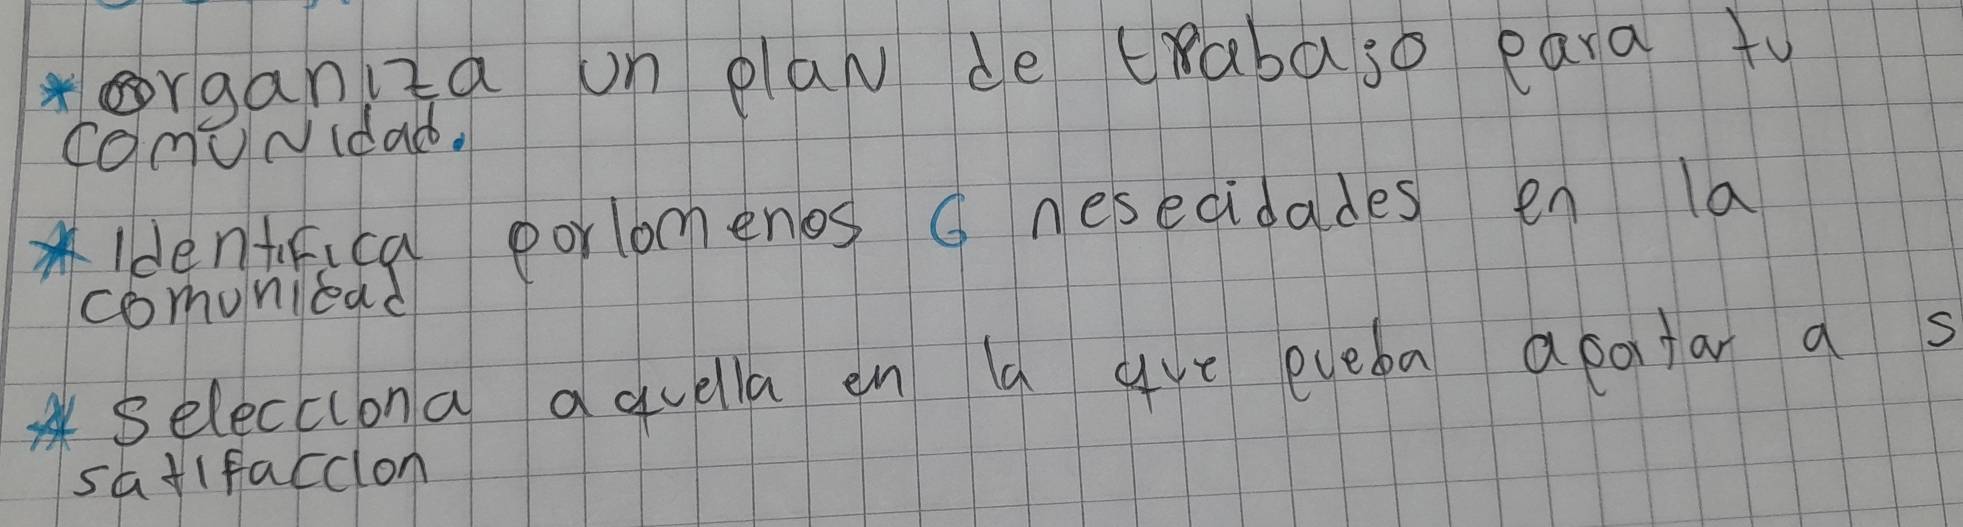 * organiza un plan de trabajo para tu
comunidad.
* identifica porlomenos 6 nesecidades en la
comunidad
* selecciona aquella en la que pueba apotar a s
satifaccion